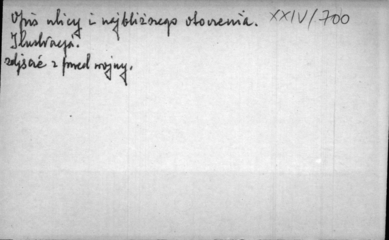 Opis ulicy i najbliższego otoczenia. XXIV/700
Ilustracja.
zdjęcie z przed wojny.